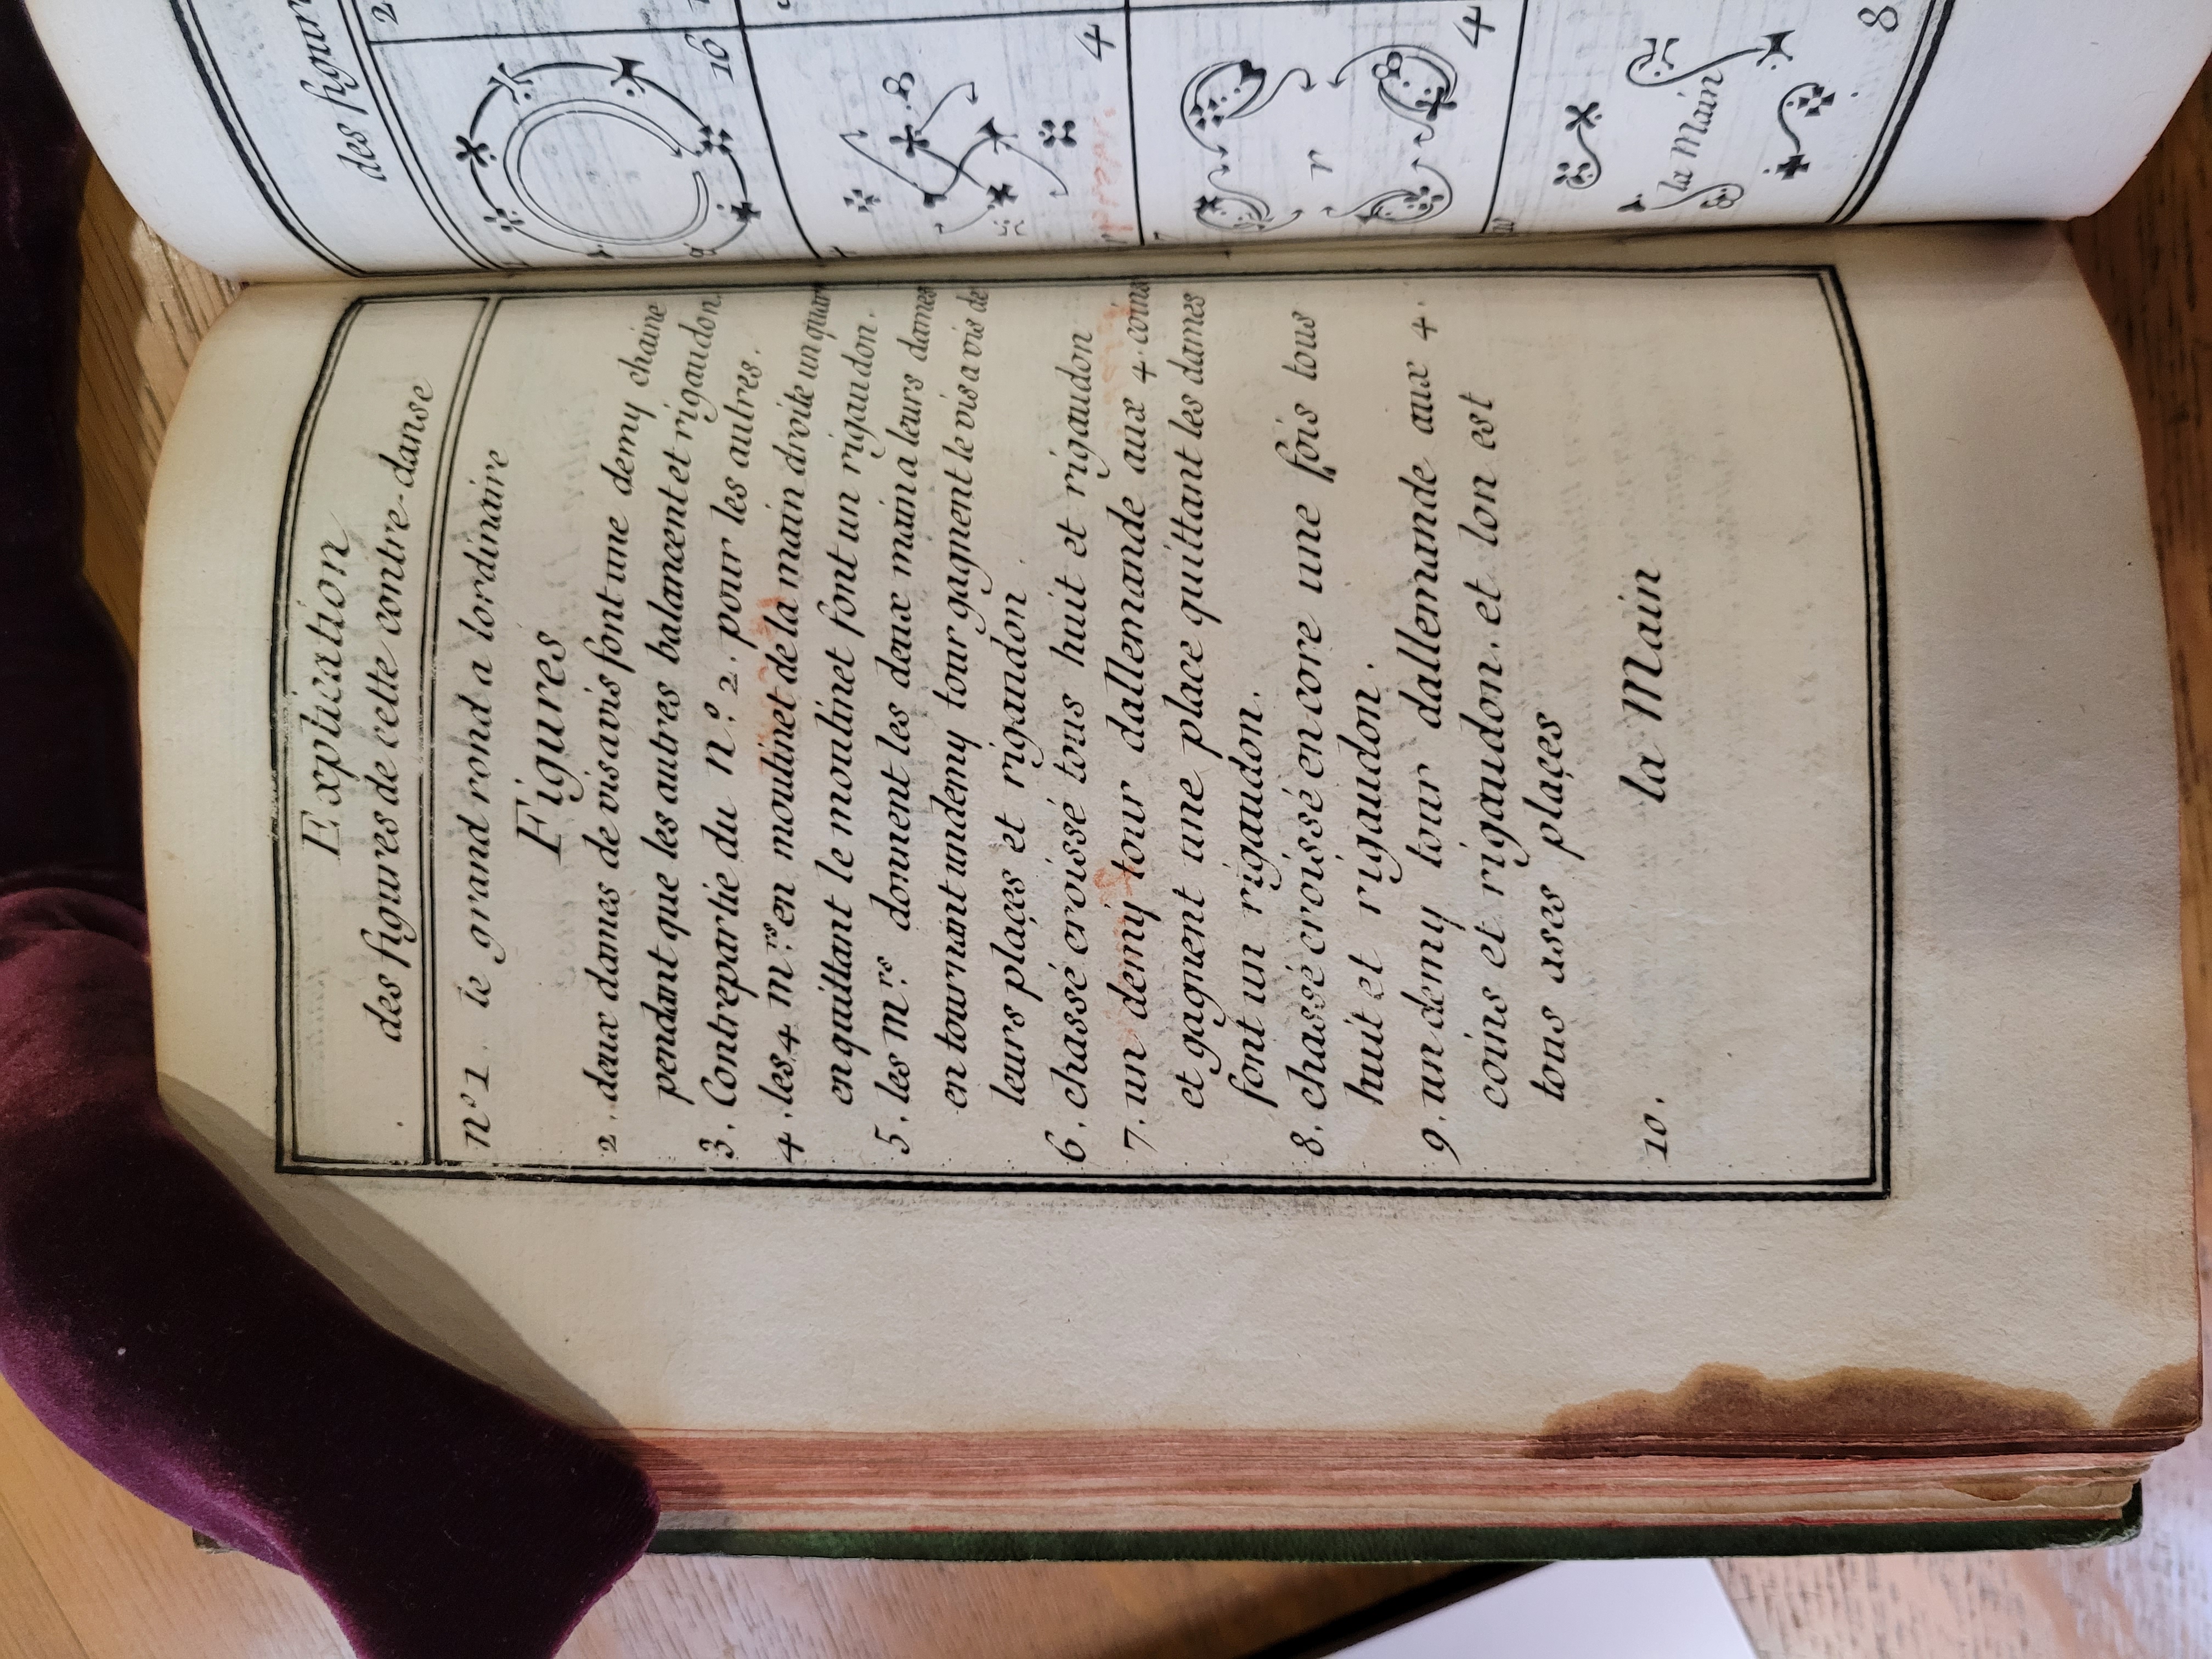 Explication
des figures de cette contre-danse
nº 1. le grand rond a lordinaire
Figures
2. deux dames de visavis font une demy chaine
pendant que les autres balancent et rigaudon
3. Contrepartie du n.º 2. pour les autres.
4. les 4 m.rs en moulinet de la main droite un quar
en quittant le moulinet font un rigaudon.
5. les m.rs donnent les deux main a leurs dames
en tournant undemy tour gagnent le vis a vis de
leurs plaçes et rigaudon.
6. chassé croissé tous huit et rigaudon
7. un demy tour dallemande aux 4. coins
et gagnent une place quittant les dames
font un rigaudon.
8. chassé croissé encore une fois tous
huit et rigaudon.
9. un demy tour dallemande aux 4.
coins et rigaudon. et lon est
tous ases plaçes
10. la Main
des figur
2
16
4
r
4
la Main
8